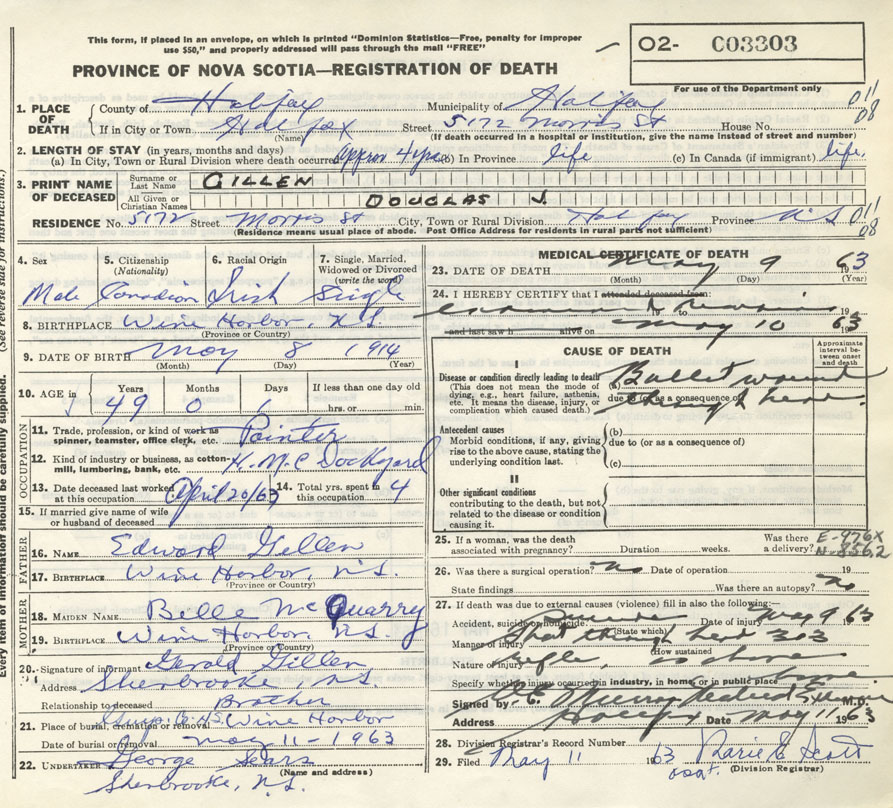 This form, if placed in an envelope, on which is printed "Dominion Statistics—Free, penalty for improper
use $50," and properly addressed will pass through the mail "FREE"
O2- C03303
PROVINCE OF NOVA SCOTIA—REGISTRATION OF DEATH
For use of the Department only
1. PLACE OF DEATH
County of Halifax Municipality of Halifax
011
08
If in City or Town Halifax Street 5172 Morris St House No.
(Name) (If death occurred in a hospital or institution, give the name instead of street and number)
2. LENGTH OF STAY (in years, months and days)
(a) In City, Town or Rural Division where death occurred approx 4 yrs (b) In Province life (c) In Canada (if immigrant) life
3. PRINT NAME OF DECEASED
Surname or Last Name GILLEN
All Given or Christian Names DOUGLAS J.
RESIDENCE No. 5172 Street Morris St City, Town or Rural Division Halifax Province N S
011
08
(Residence means usual place of abode. Post Office Address for residents in rural parts not sufficient)
4. Sex 5. Citizenship (Nationality) 6. Racial Origin 7. Single, Married, Widowed or Divorced (write the word)
Male Canadian Irish Single
8. BIRTHPLACE Wine Harbor, N.S.
(Province or Country)
9. DATE OF BIRTH May 8 1914
(Month) (Day) (Year)
10. AGE in Years Months Days If less than one day old
49 0 1 hrs. or min.
OCCUPATION
11. Trade, profession, or kind of work as spinner, teamster, office clerk, etc. Painter
12. Kind of industry or business, as cotton-mill, lumbering, bank, etc. H.M.C Dockyard
13. Date deceased last worked at this occupation April 20/63 14. Total yrs. spent in this occupation 4
15. If married give name of wife or husband of deceased
FATHER
16. NAME Edward Gillen
17. BIRTHPLACE Wine Harbor, N.S.
(Province or Country)
MOTHER
18. MAIDEN NAME Belle McQuarry
19. BIRTHPLACE Wine Harbor, N.S.
(Province or Country)
20. Signature of informant Gerald Gillen
Address Sherbrooke, N.S.
Relationship to deceased Brother
21. Place of burial, cremation or removal Wine Harbor
Date of burial or removal May 11-1963
22. UNDERTAKER George Sears
(Name and address)
Sherbrooke, N.S.
MEDICAL CERTIFICATE OF DEATH
23. DATE OF DEATH May 9 1963
(Month) (Day) (Year)
24. I HEREBY CERTIFY that I attended deceased from:
19 to 19
and last saw h alive on May 10 1963
CAUSE OF DEATH
Approximate interval between onset and death
I
Disease or condition directly leading to death
(This does not mean the mode of dying, e.g., heart failure, asthenia, etc. It means the disease, injury, or complication which caused death.)
(a) Bullet wound
due to (or as a consequence of)
Antecedent causes
Morbid conditions, if any, giving rise to the above cause, stating the underlying condition last.
(b)
due to (or as a consequence of)
(c)
II
Other significant conditions
contributing to the death, but not related to the disease or condition causing it.
25. If a woman, was the death associated with pregnancy? Duration weeks. Was there a delivery?
E-976X
N-856.2
26. Was there a surgical operation? no Date of operation 19
State findings Was there an autopsy? no
27. If death was due to external causes (violence) fill in also the following:—
Accident, suicide or homicide. Date of injury May 9 1963
(State which)
Manner of injury
(How sustained)
303
Nature of injury rifle, as above
Specify whether injury occurred in industry, in home, or in public place
Signed by M.D.
Address Halifax Date May 11 1963
28. Division Registrar's Record Number
29. Filed May 11 1963 Scott
(Division Registrar)
Every item of information should be carefully supplied. (See reverse side for instructions.)